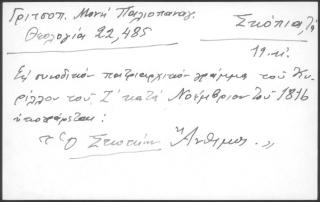 Γριτσοπ. Μονή Παλιοπαναγ.
Θεολογία 22, 485
Σκόπια,
19.
Ἐν συνοδικῷ πατριαρχικῷ γράμμα τοῦ Κυ-
ρίλλου τοῦ Ϛ´ κατά Νοέμβριον τοῦ 1816
ὑπογράφεται:
"ὁ Σκοπίων Ἄνθιμος."